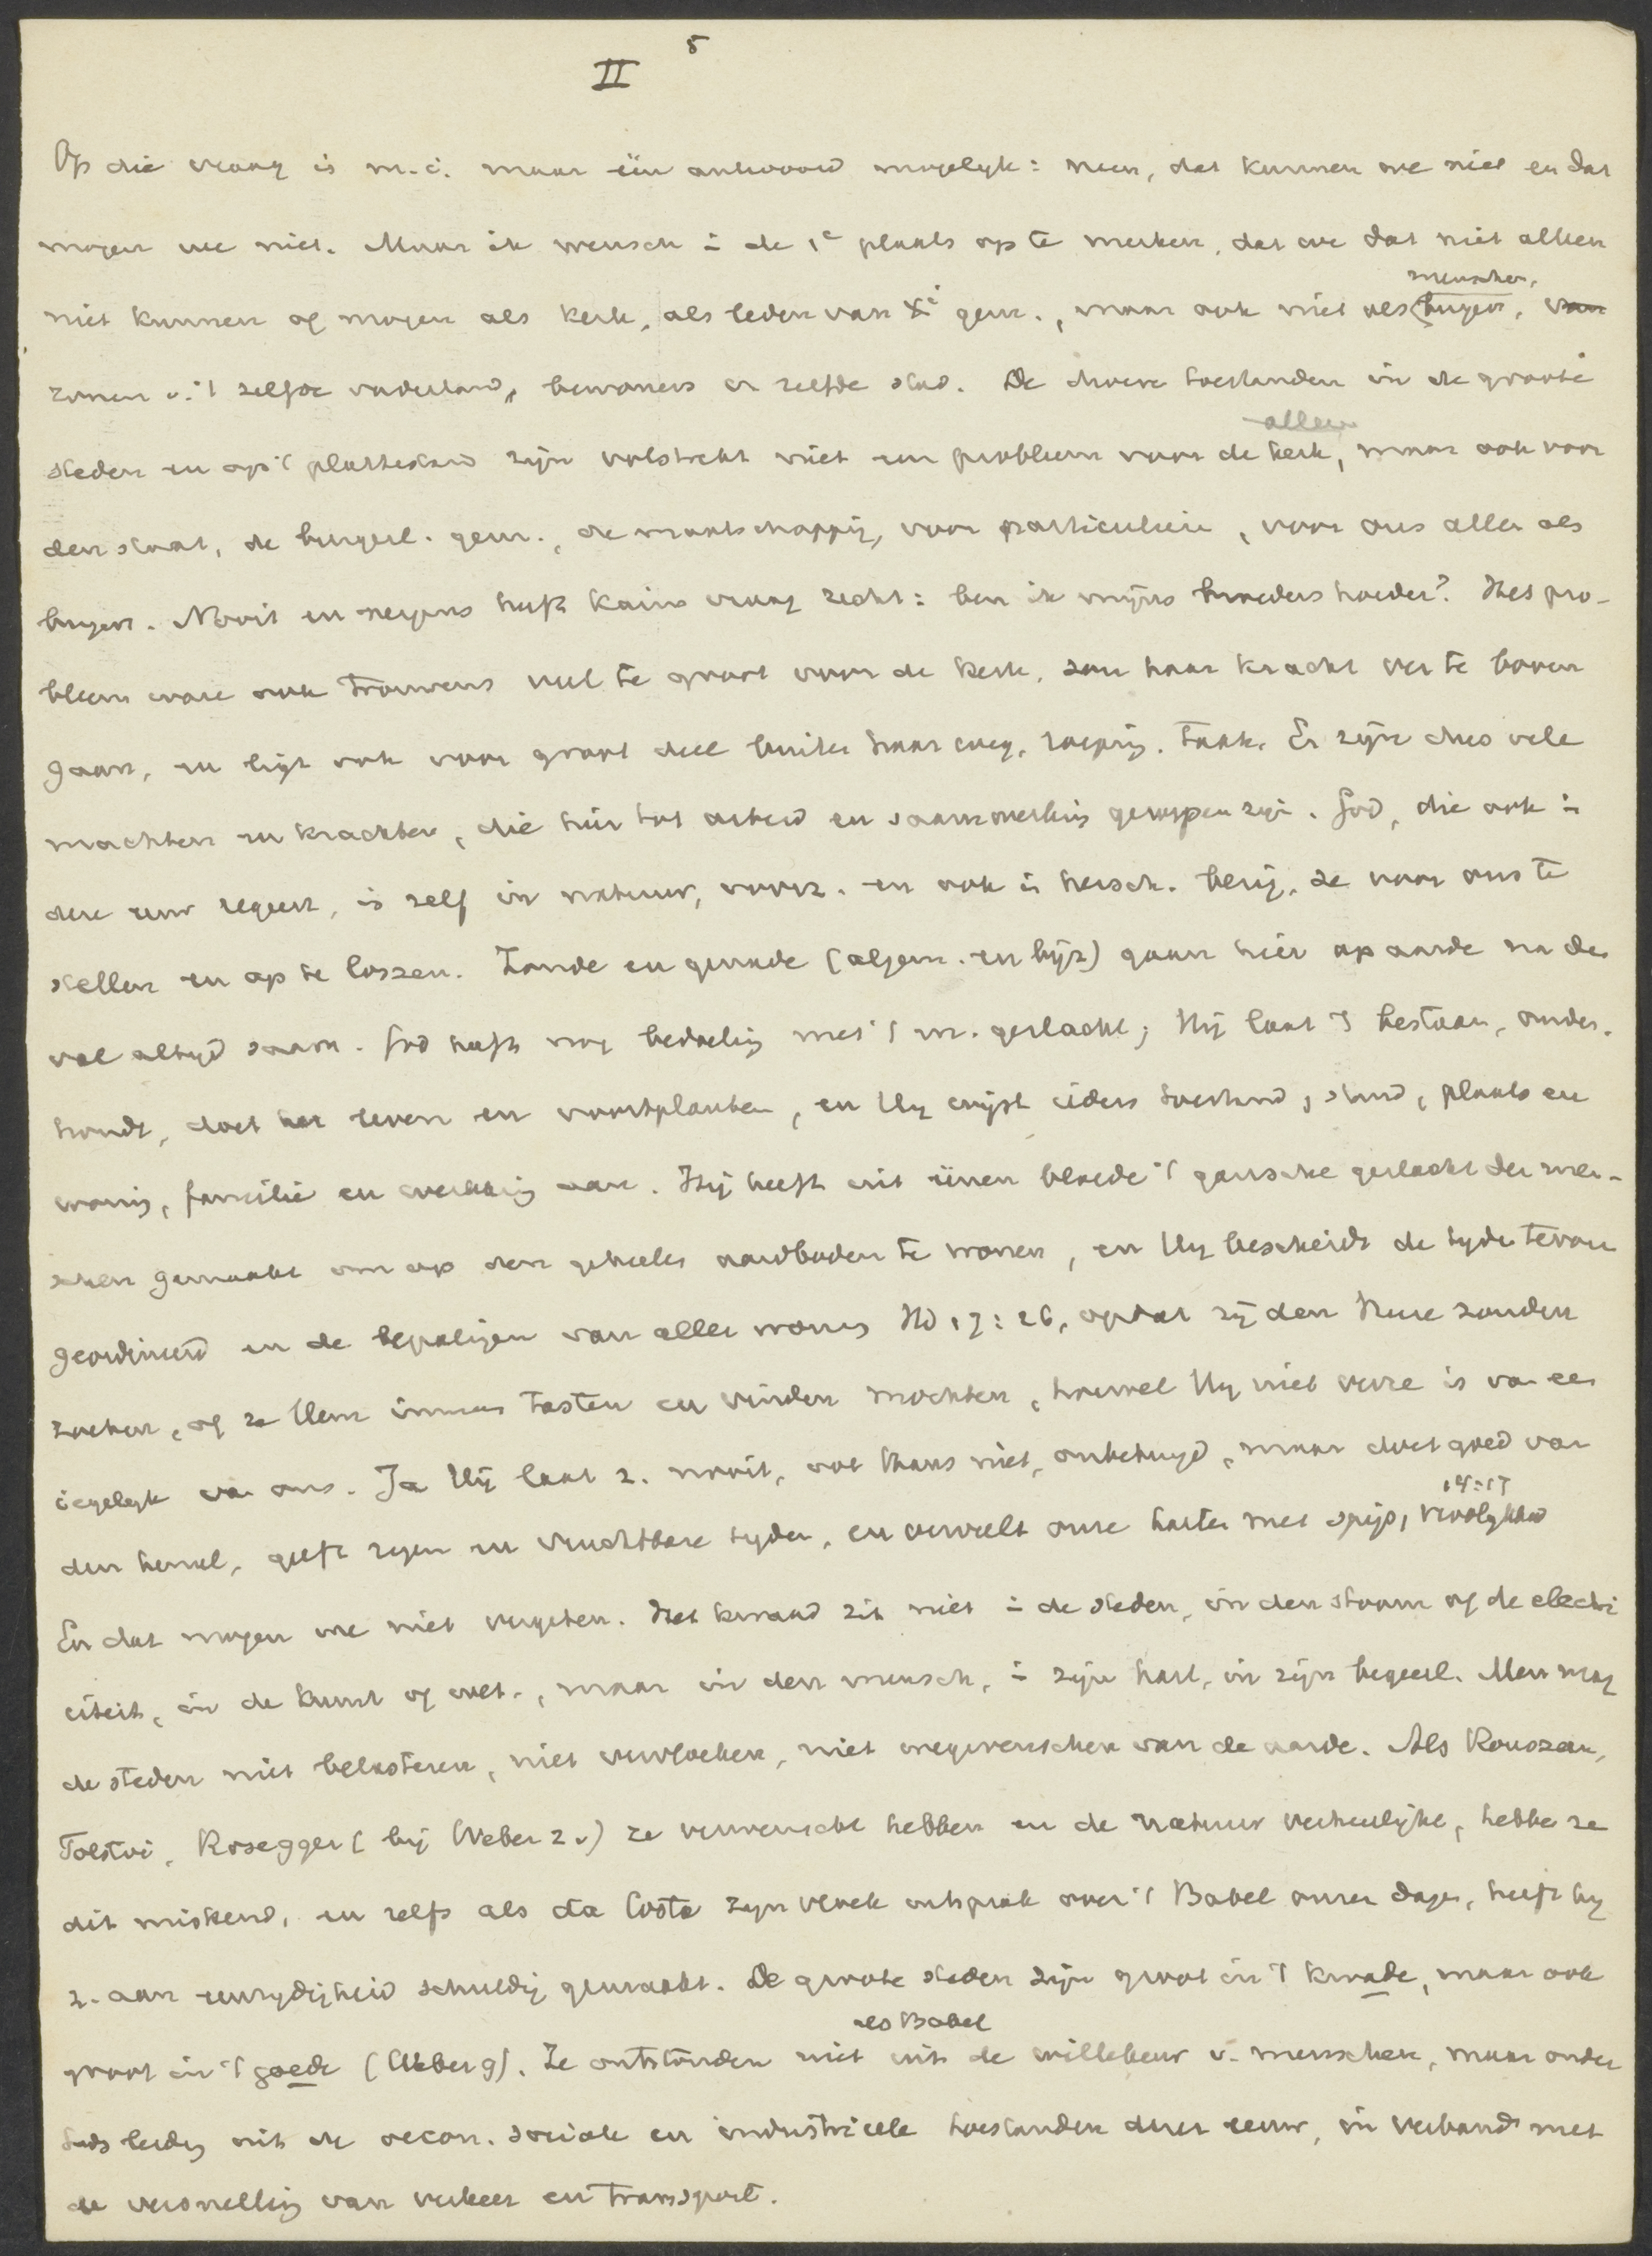 5
II
Op die vraag is m.i. maar één antwoord mogelyk: neen, dat kunnen we niet en dat
mogen we niet. Maar ik wensch i de 1e plaats op te merken, dat we dat niet alleen
menschen,
niet kunnen of mogen als kerk, als leden van Xi gem., maar ook niet als burgers, van
zonen v. 't zelfde vaderland, bewoners er zelfde stad. De droeve toestanden in de groote
alleen
steden en op 't platteland zijn volstrekt niet een probleem voor de kerk, maar ook voor
den staat, de burgerl. gem., de maatschappij, voor particuliere, voor ons allen als
burgers. Nooit en nergens heeft Kains vraag recht: ben ik mijns broeders hoeder? Het pro-
bleem ware ook trouwens veel te groot voor de kerk, zou haar kracht ver te boven
gaan, en ligt ook voor groot deel buiten haar weg, roeping, taak. Er zijn dus vele
machten en krachten, die hier tot arbeid en saamwerking geroepen zijn. God, die ook i
deze eeuw regeert, is zelf in natuur, voorz. en ook i hersch. bezig, ze voor ons te
stellen en op te lossen. Zonde en genade (algem. en bijz) gaan hier op aarde na den
val altyd saam. God heeft nog bedoeling met 't m. geslacht; Hij laat 't bestaan, onder-
houdt, doet het leven en voortplanten, en Hy wijst ieders toestand, stand, plaats en
woning, familie en werkkring aan. Hij heeft uit éénen bloede 't gansche geslacht der men-
schen gemaakt om op den geheelen aardbodem te wonen, en Hy bescheidt de tyden tevoren
geordineerd en de bepalingen van aller woning Hd 17:26, opdat zij den Heere zouden
zoeken, of ze Hem immers tasten en vinden mochten, hoewel Hy niet verre is van een
iegelyk van ons. Ja Hij laat z. nooit, ook thans niet, onbetuigd, maar doet goed van
14:17
den hemel, geeft regen en vruchtbare tyden, en vervult onze harten met spijs, vroolykheid
En dat mogen we niet vergeten. Het kwaad zit niet i de steden, in den stoom of de electri
citeit, in de kunst of wet., maar in den mensch, i zijn hart, in zijn begeerl. Men mag
de steden niet belasteren, niet vervloeken, niet wegwenschen van de aarde. Als Rousseau,
Tolstoi, Rosegger (bij Weber 2v) ze verwenscht hebben en de natuur verheerlijkt, hebben ze
dit miskend, en zelfs als da Costa zijn vloek uitsprak over 't Babel onzer dagen, heeft hy
z. aan eenzydigheid schuldig gemaakt. De groote steden zijn groot in 't kwade, maar ook
als Babel
groot in 't goede (Weber 9). Ze ontstonden niet uit de willekeur v. menschen, maar onder
Gods leiding uit de oecon. sociale en industrieele toestanden dezer eeuw, in verband met
de versnelling van verkeer en transport.